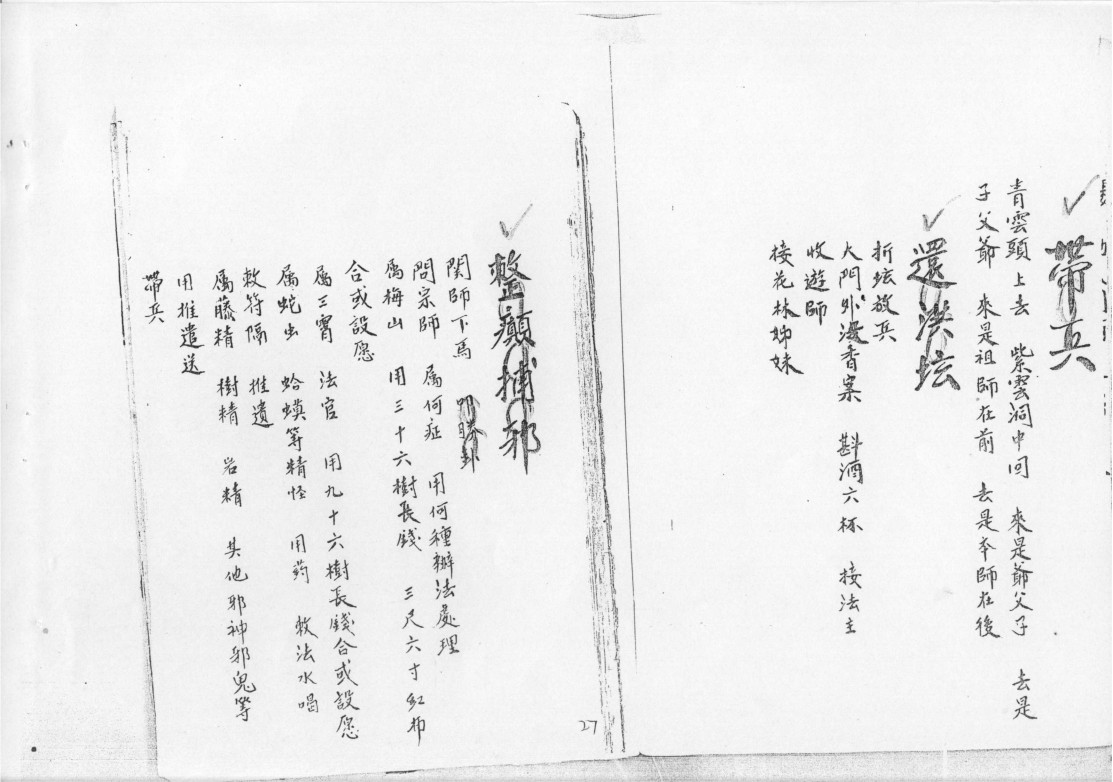 帶兵
青雲頭上去 紫雲洞中回 來是爺父子 去是
子父爺 來是祖師在前 去是本師在後
還洪坛
折坛放兵
大門外设香案 斟酒六杯 接法主
收遊師
接花林姊妹
整癲捕邪
関師下馬 叩勝卦
問宗師 属何症 用何種辦法處理
属梅山 用三十六樹長錢 三尺六寸紅布
合或設愿
属三霄 法官 用九十六樹長錢合或設愿
属蛇虫 蛤蟆等精怪 用药 敕法水喝
敕符隔 推遣
属藤精 樹精 岩精 其他邪神邪鬼等
用推遣送
帶兵
27